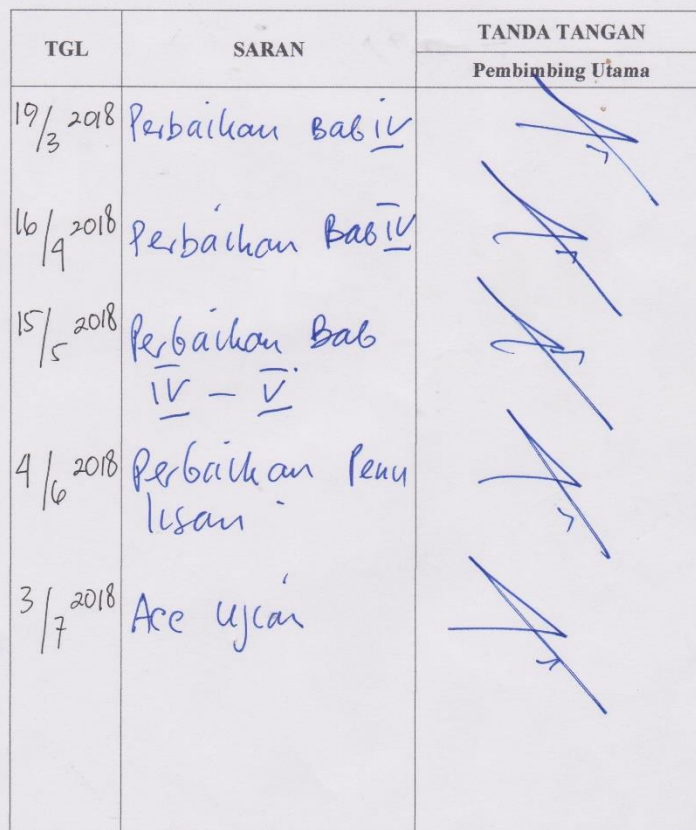 TGL SARAN TANDA TANGAN
Pembimbing Utama
19/3 2018 Perbaikan Bab IV
16/4 2018 Perbaikan Bab IV
15/5 2018 Perbaikan Bab
IV - V.
4/6 2018 Perbaikan Penu
lisan
3/7 2018 Acc Ujian